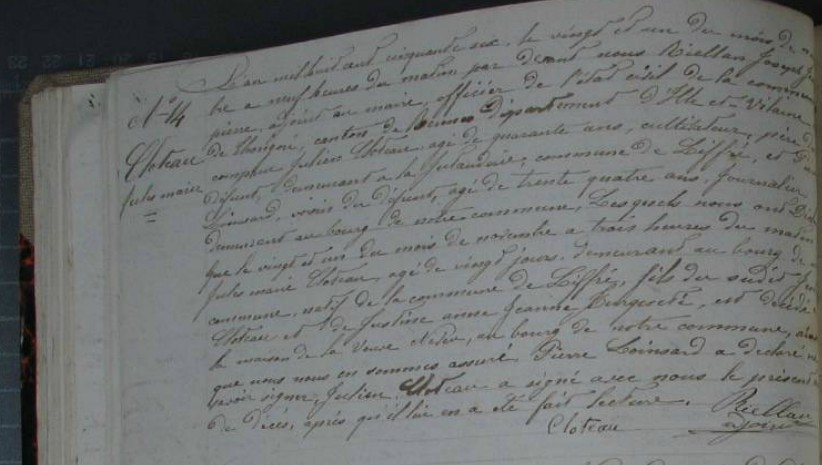 N° 14
Cloteau
jules marie
L'an mil huit cent cinquante six, le vingt et un du mois de
bre a neuf heures du matin, par devant nous Riellan Joseph
pierre, adjoint au maire, officier de l'état civil de la commune
de Thorigné, canton de Rennes Département d'Ille et-Vilaine
comparu Julien Cloteau agé de quarante ans, cultivateur, père
défunt, demeurant a la commune de Liffré, et
Loinsard, voisin du défunt, agé de trente quatre ans, journalier
demeurant au bourg de notre commune, Lesquels nous ont
que le vingt et un du mois de novembre a trois heures du matin
jules marie Cloteau, agé de vingt jours, demeurant au bourg de
commune, natif de la commune de Liffré, fils du sudit
Cloteau et de Justine anne Jeanne est décédé
la maison de la Veuve au bourg de notre commune,
que nous nous en sommes assuré. Pierre Loinsard a declaré
savoir signer, Julien Cloteau a signé avec nous le présent
de Décés, après qu'il lui en a été fait lecture.
Cloteau
Riellan
adjoint